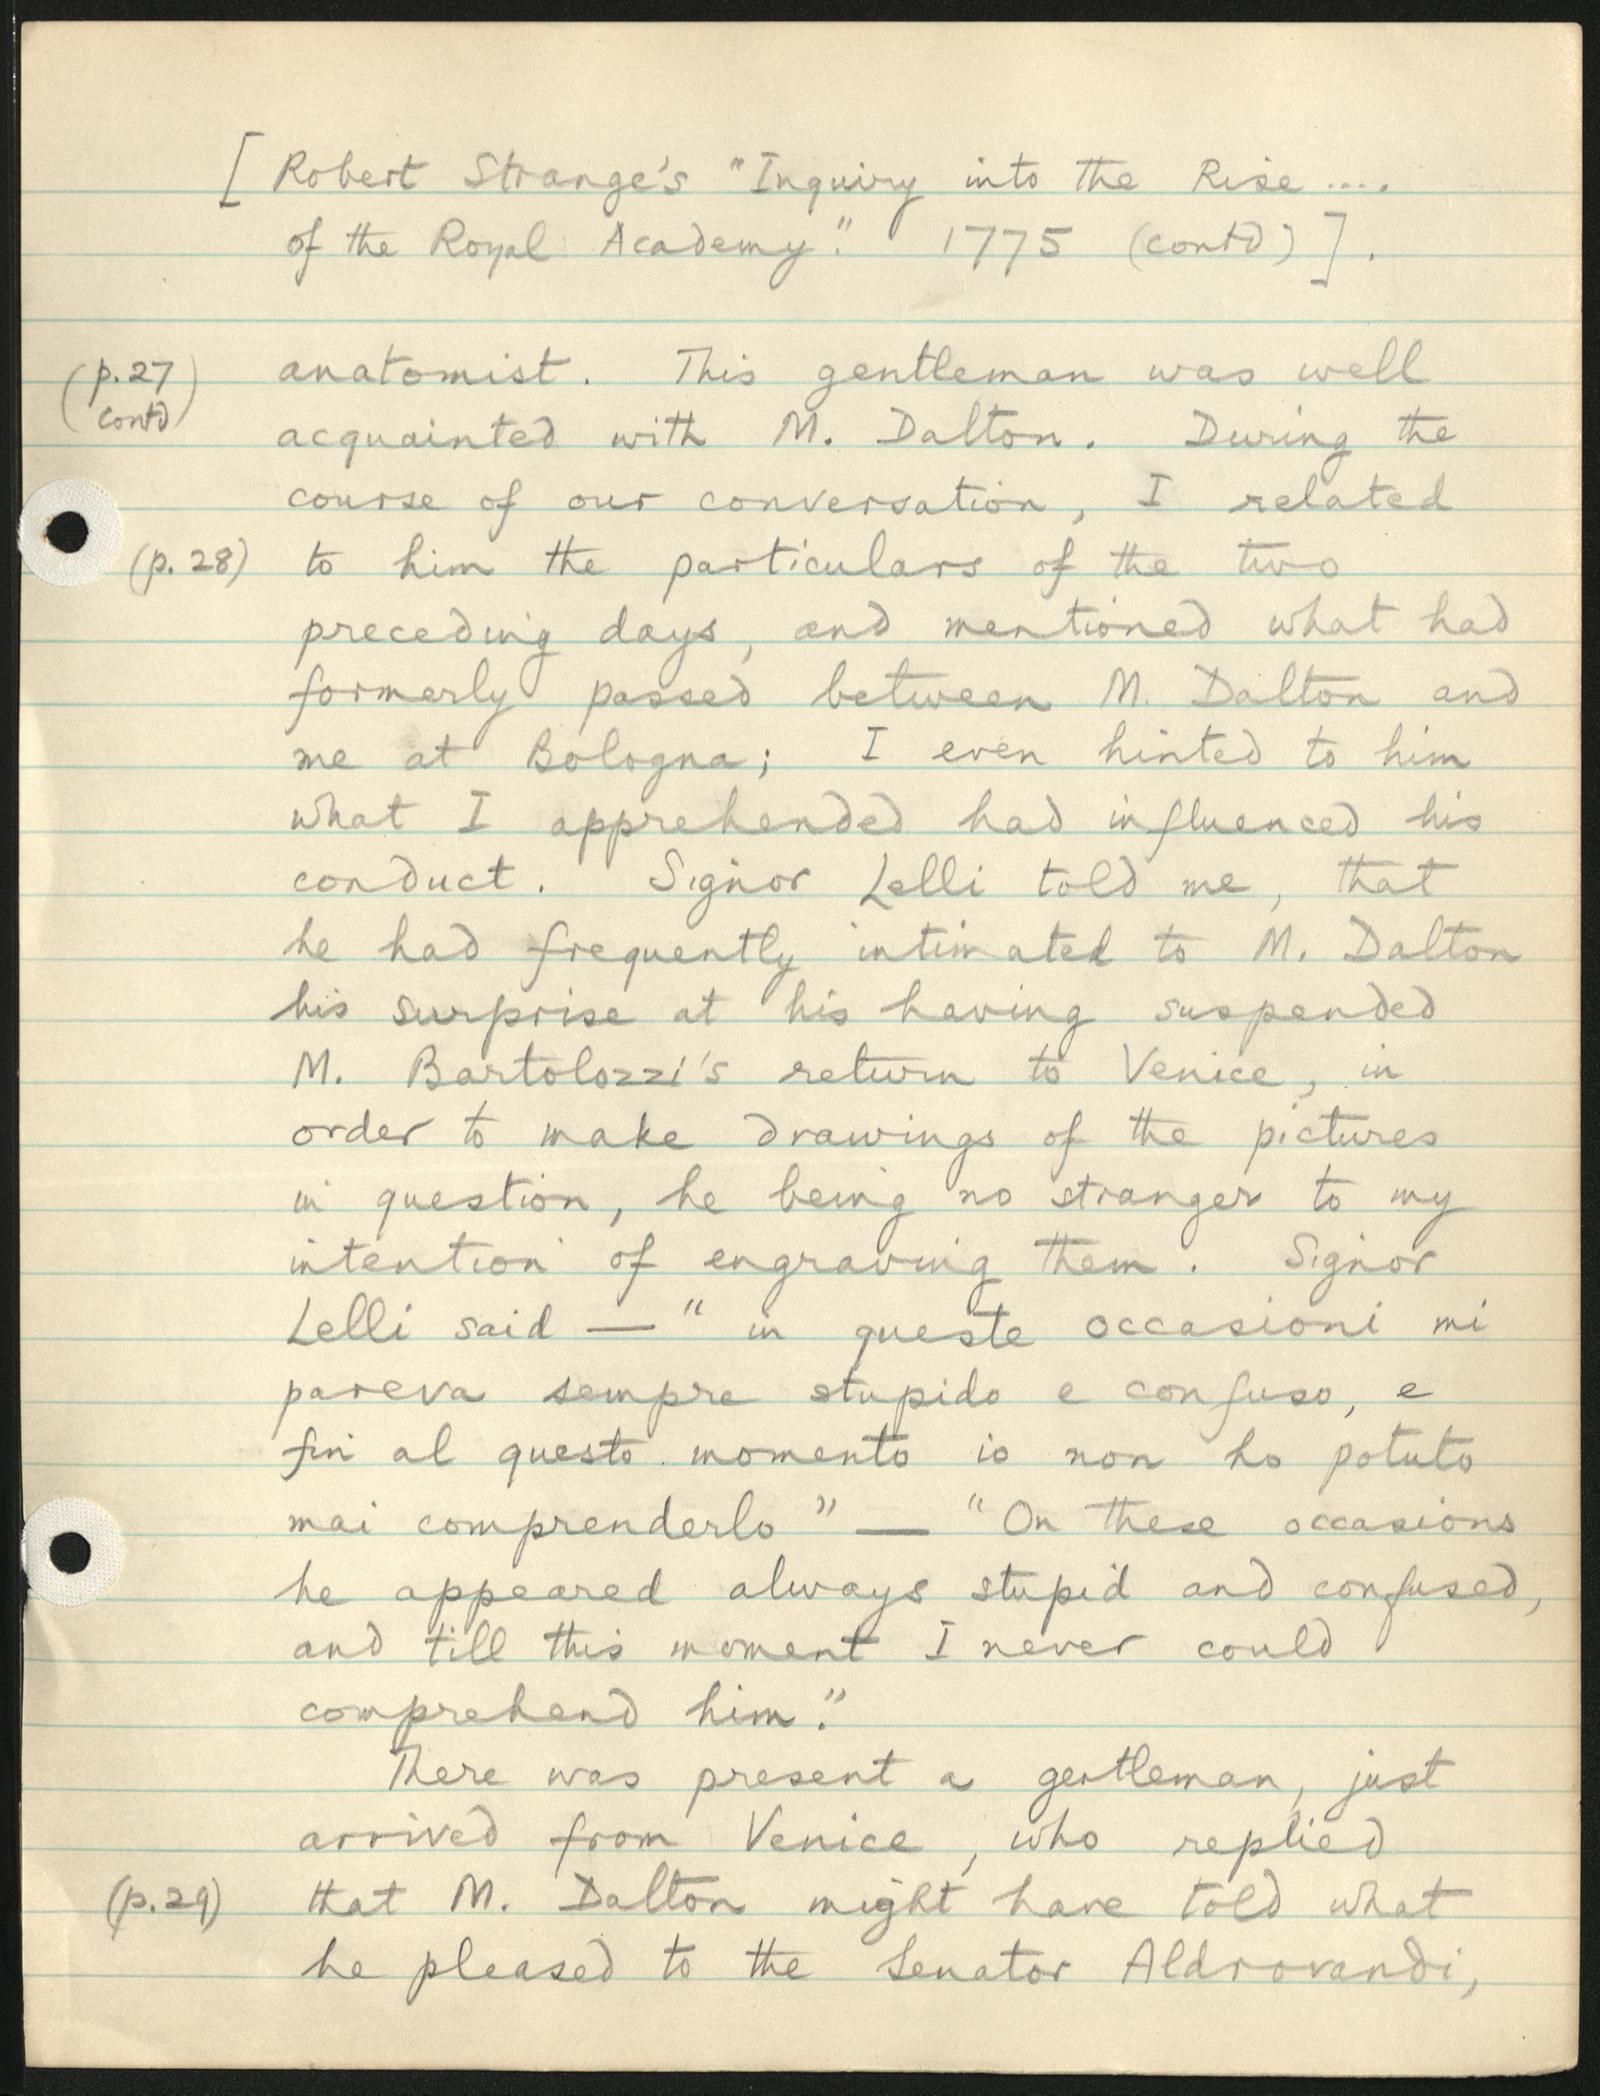 [ Robert Strange's "Inquiry into the Rise ....
of the Royal Academy." 1775 (contd) ].
(p. 27 contd) anatomist. This gentleman was well
acquainted with M. Dalton. During the
course of our conversation, I related
(p. 28) to him the particulars of the two
preceding days, and mentioned what had
formerly passed between M. Dalton and
me at Bologna; I even hinted to him
what I apprehended had influenced his
conduct. Signor Lelli told me, that
he had frequently intimated to M. Dalton
his surprise at his having suspended
M. Bartolozzi's return to Venice, in
order to make drawings of the pictures
in question, he being no stranger to my
intention of engraving them. Signor
Lelli said — "in queste occasioni mi
pareva sempre stupido e confuso, e
fin al questo momento io non ho potuto
mai comprenderlo" — "On these occasions
he appeared always stupid and confused,
and till this moment I never could
comprehend him."
There was present a gentleman, just
arrived from Venice, who replied
(p. 29) that M. Dalton might have told what
he pleased to the Senator Aldrovandi,